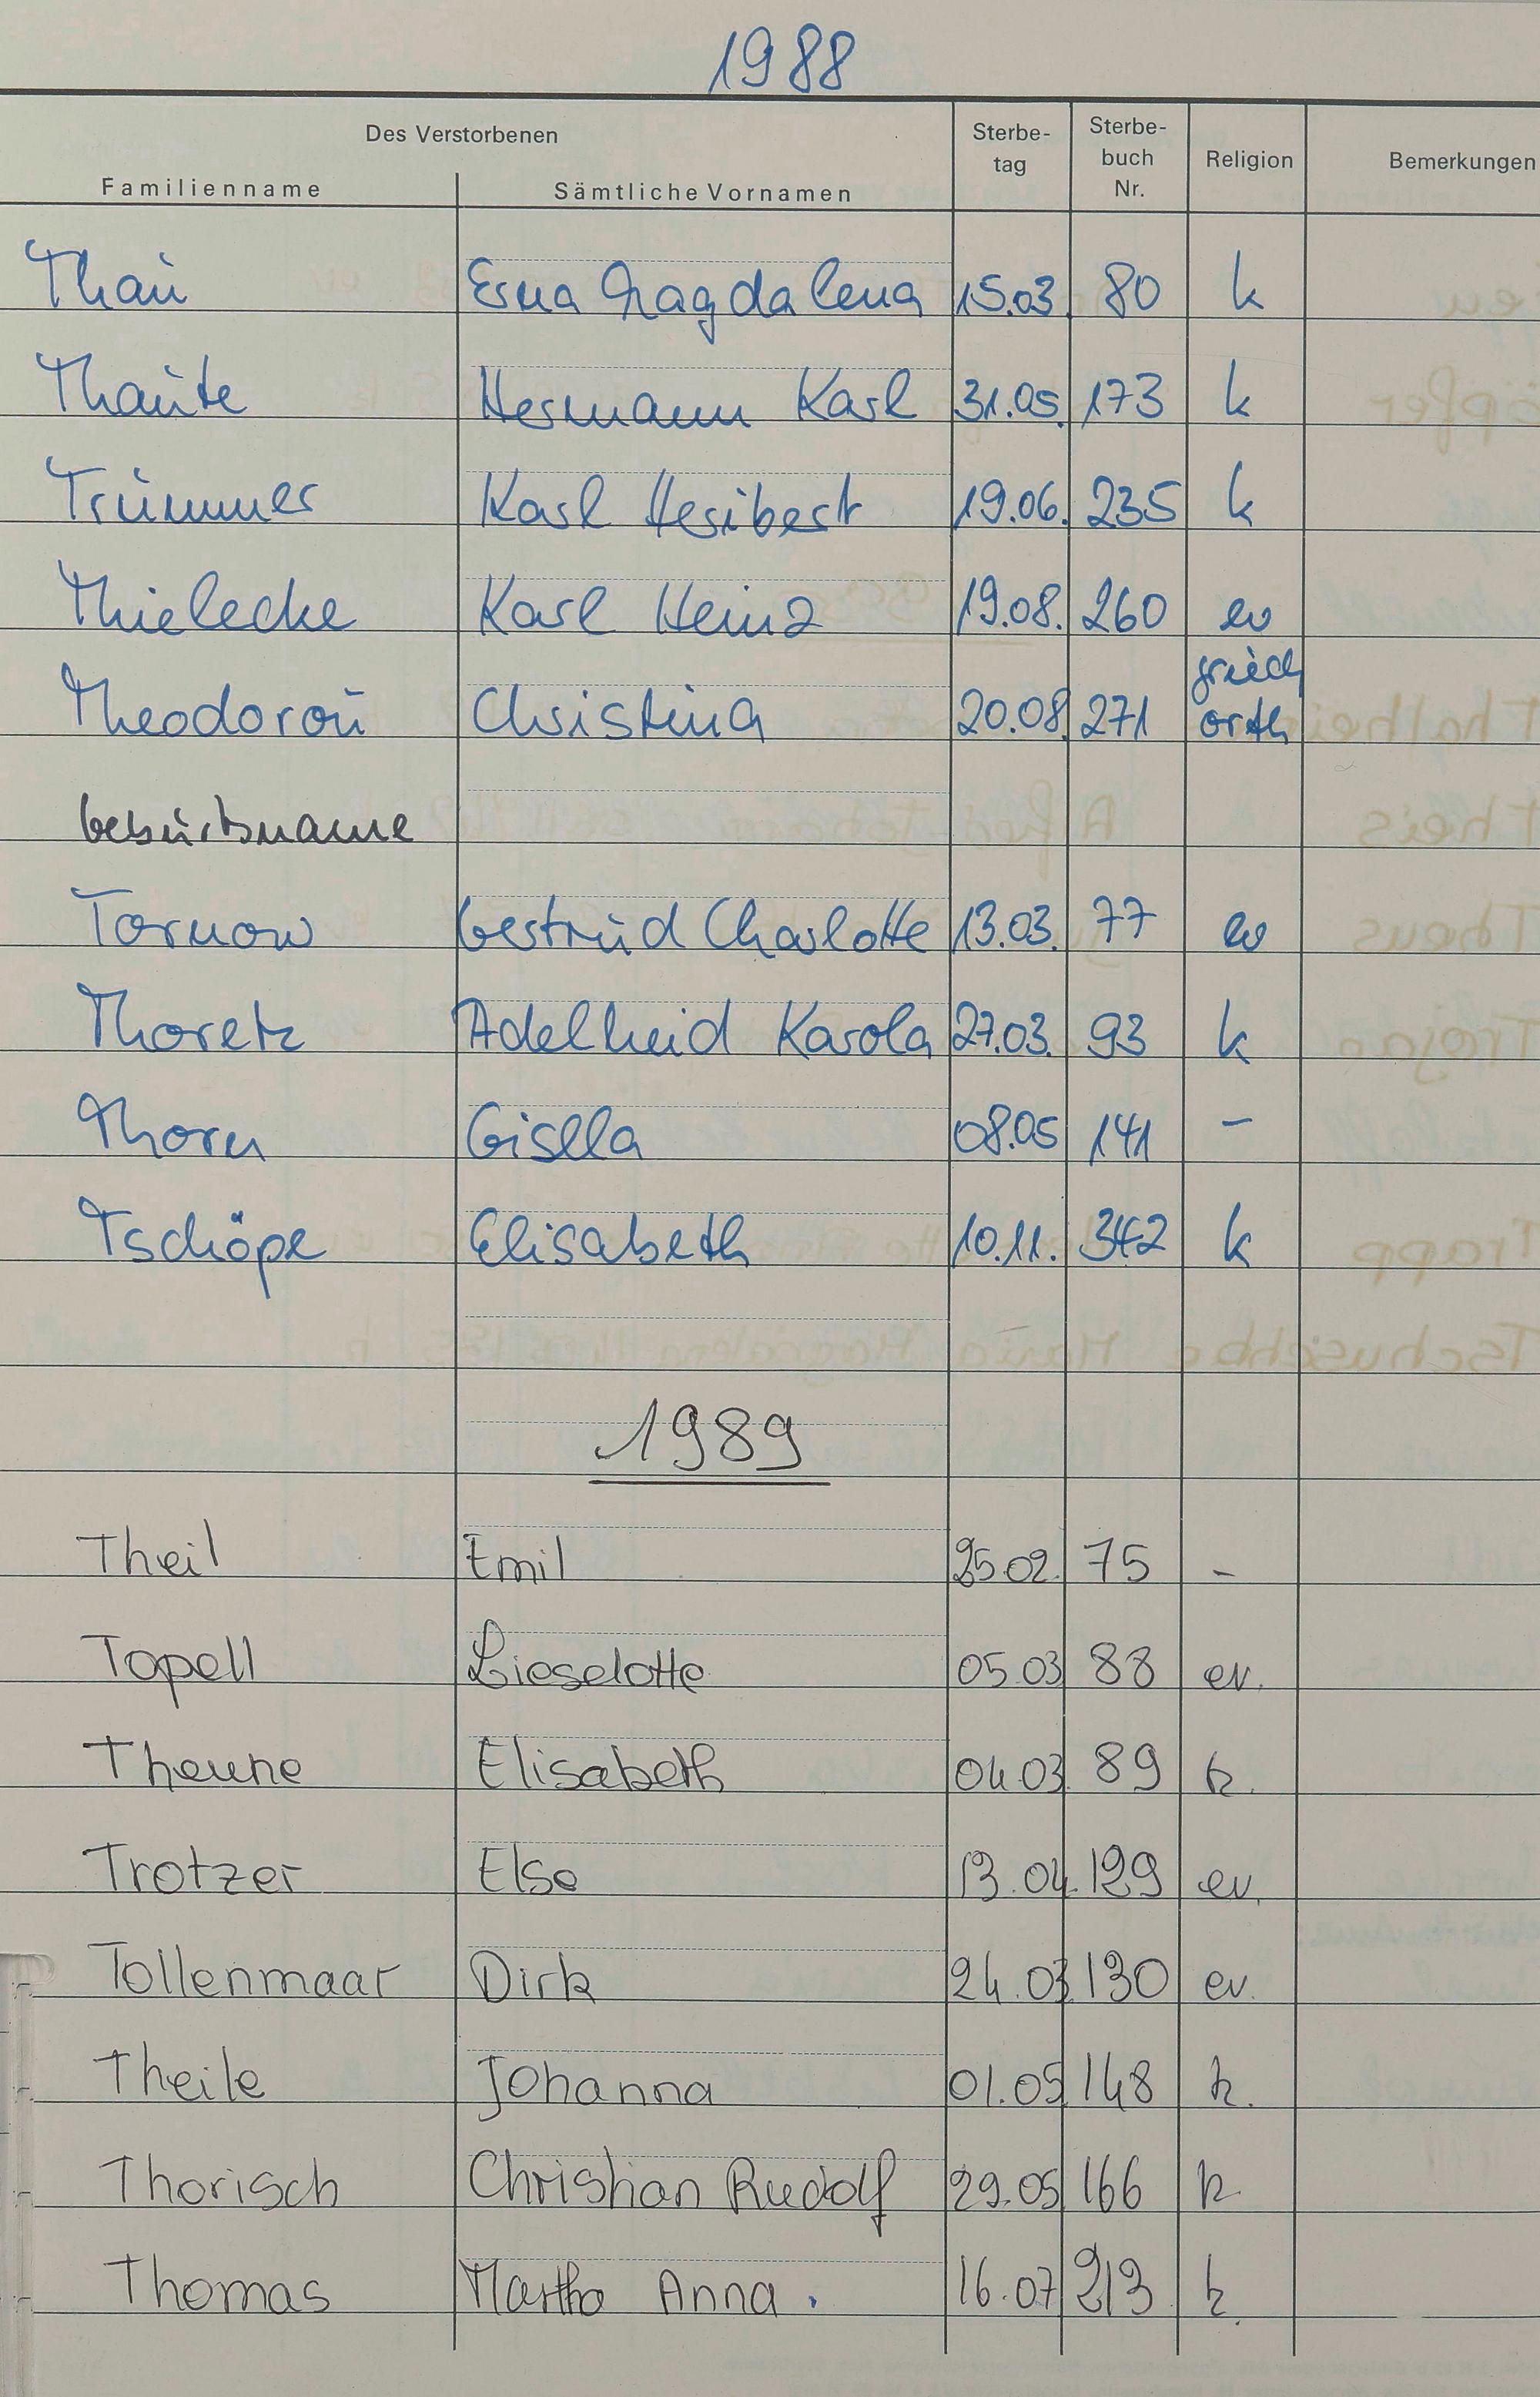 1988
Des Verstorbenen Sterbe- Sterbe- Religion Bemerkungen
tag buch
Familienname Sämtliche Vornamen Nr.
Thau Erna Magdalena 15.03. 80 k
Thaute Hermann Karl 31.05. 173 k
Trümmer Karl Heribert 19.06. 235 k
Thielecke Karl Heinz 19.08. 260 ev
griech
Theodorou Christina 20.08. 271 orth
Geburtsname
Tornow Gertrud Charlotte 13.03. 77 ev
Thoretz Adelheid Karola 27.03. 93 k
Thorn Gisela 08.05 141 –
Tschöpe Elisabeth 10.11. 342 k
1989
Theil Emil 25.02. 75 –
Topell Lieselotte 05.03 88 ev.
Theune Elisabeth 04.03 89 k.
Trotzer Else 13.04. 129 ev.
Tollenmaar Dirk 24.03. 130 ev.
Theile Johanna 01.05 148 k.
Thorisch Christian Rudolf 29.05 166 k.
Thomas Martha Anna. 16.07 213 k.